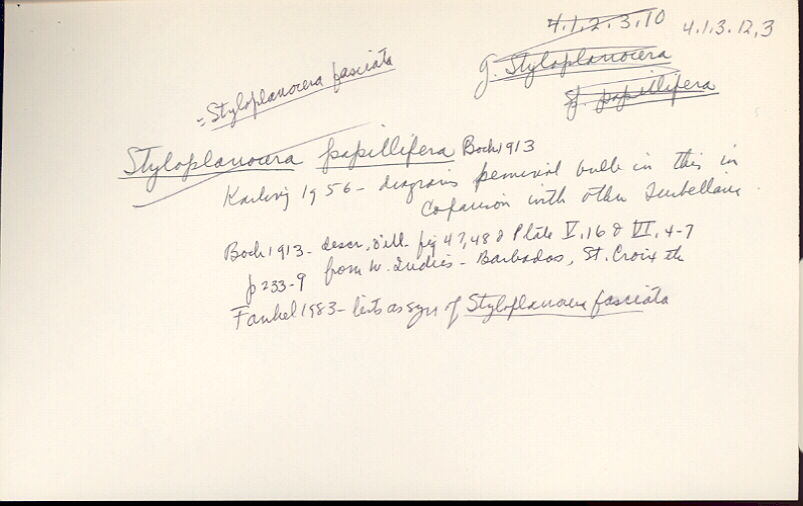 4.1.2.3.10 4.1.3.12,3
G. Styloplanocera
S. papillifera
= Styloplanocera fasciata
Styloplanocera papillifera Bock 1913
Karling 1956 - diagrams penial bulb in this in
comparison with other Turbellaria.
Bock 1913 - descr. & ill. fig 47,48 & Plate V.16 & VI, 4-7
p 233-9 from W. Indies - Barbados, St. Croix etc
Faubel 1983 - lists as syn of Styloplanocera fasciata